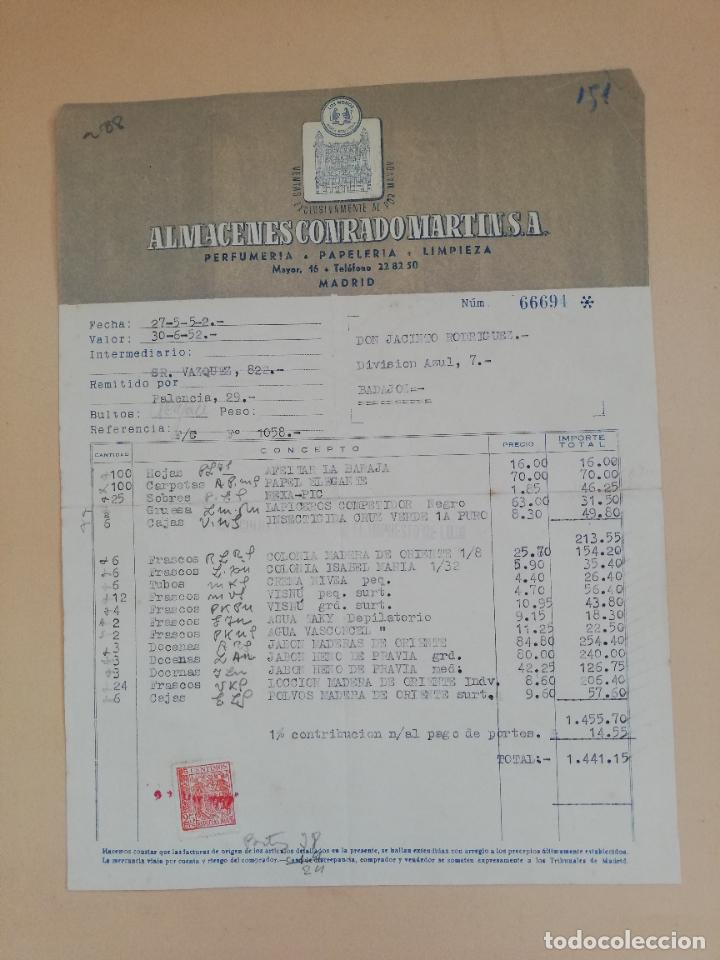 208
151
LOS MADROÑOS
VENTAS EXCLUSIVAMENTE AL POR MAYOR
ALMACENES CONRADO MARTIN S.A.
PERFUMERIA • PAPELERIA • LIMPIEZA
Mayor, 16 • Teléfono 22 82 50
MADRID
Núm. 66694 *
Fecha: 27-5-52.-
Valor: 30-6-52.-
DON JACINTO RODRIGUEZ.-
Intermediario:
Division Azul, 7.-
SR. VAZQUEZ, 822.-
Remitido por
BADAJOZ.-
Palencia, 29.-
Bultos: Peso:
Referencia: P/C Nº 1058.-
CANTIDAD CONCEPTO PRECIO IMPORTE TOTAL
100 Hojas AFEITAR LA BARAJA 16.00 16.00
100 Carpetas PAPEL ELEGANTE 70.00 70.00
25 Sobres NEXA-PIC 1.85 46.25
Gruesa LAPICEROS COMPETIDOR Negro 63.00 31.50
6 Cajas INSECTICIDA CRUZ VERDE 1A PURO 8.30 49.80
213.55
6 Frascos COLONIA MADERA DE ORIENTE 1/8 25.70 154.20
6 Frascos COLONIA ISABEL MARIA 1/32 5.90 35.40
6 Tubos CREMA NIVEA peq. 4.40 26.40
12 Frascos VISNÚ peq. surt. 4.70 56.40
4 Frascos VISNÚ grd. surt. 10.95 43.80
2 Frascos AGUA TAKY Depilatorio 9.15 18.30
2 Frascos AGUA VASCONCEL " 11.25 22.50
3 Docenas JABON MADERAS DE ORIENTE 84.80 254.40
3 Docenas JABON HENO DE PRAVIA grd. 80.00 240.00
3 Docenas JABON HENO DE PRAVIA med. 42.25 126.75
24 Frascos LOCCION MADERA DE ORIENTE Indv. 8.60 206.40
6 Cajas POLVOS MADERA DE ORIENTE surt. 9.60 57.60
1.455.70
1% contribucion n/al pago de portes. 14.55
TOTAL:- 1.441.15
CENTIMOS
Portes 38
24
Hacemos constar que las facturas de origen de los artículos detallados en la presente, se hallan extendidas con arreglo a los preceptos últimamente establecidos.
La mercancía viaja por cuenta y riesgo del comprador.—Caso de discrepancia, comprador y vendedor se someten expresamente a los Tribunales de Madrid.
todocoleccion.net